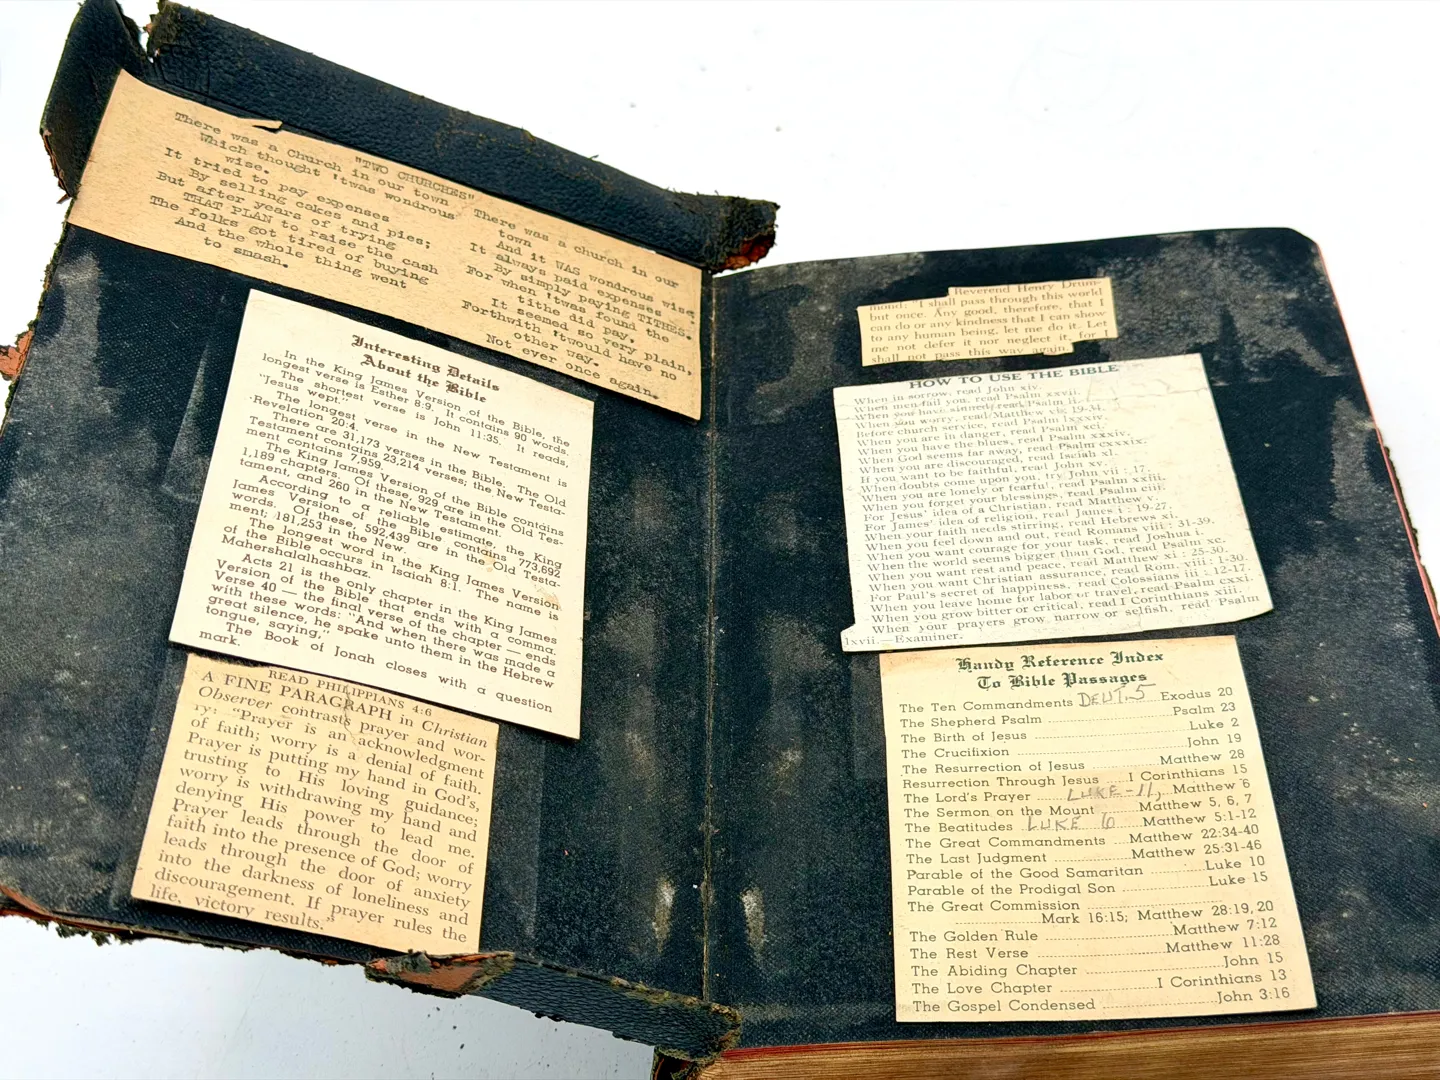 "TWO CHURCHES"
There was a Church in our town
Which thought 'twas wondrous
wise.
It tried to pay expenses
By selling cakes and pies;
But after years of trying
THAT PLAN to raise the cash
The folks got tired of buying
And the whole thing went
to smash.
There was a church in our
town
And it WAS wondrous wise,
It always paid expenses
By simply paying TITHES.
For when 'twas found the
tithe did pay,
It seemed so very plain,
Forthwith 'twould have no
other way.
Not ever once again.
Interesting Details
About the Bible
In the King James Version of the Bible, the
longest verse is Esther 8:9. It contains 90 words.
The shortest verse is John 11:35. It reads,
"Jesus wept."
The longest verse in the New Testament is
Revelation 20:4.
There are 31,173 verses in the Bible. The Old
Testament contains 23,214 verses; the New Testa-
ment contains 7,959.
The King James Version of the Bible contains
1,189 chapters. Of these, 929 are in the Old Tes-
tament, and 260 in the New Testament.
According to a reliable estimate, the King
James Version of the Bible contains 773,692
words. Of these, 592,439 are in the Old Testa-
ment; 181,253 in the New.
The longest word in the King James Version
of the Bible occurs in Isaiah 8:1. The name is
Mahershalalhashbaz.
Acts 21 is the only chapter in the King James
Version of the Bible that ends with a comma.
Verse 40 — the final verse of the chapter — ends
with these words: "And when there was made a
great silence, he spake unto them in the Hebrew
tongue, saying,"
The Book of Jonah closes with a question
mark.
READ PHILIPPIANS 4:6
A FINE PARAGRAPH in Christian
Observer contrasts prayer and wor-
ry: "Prayer is an acknowledgment
of faith; worry is a denial of faith.
Prayer is putting my hand in God's,
trusting to His loving guidance;
worry is withdrawing my hand and
denying His power to lead me.
Prayer leads through the door of
faith into the presence of God; worry
leads through the door of anxiety
into the darkness of loneliness and
discouragement. If prayer rules the
life, victory results."
Reverend Henry Drum-
mond: "I shall pass through this world
but once. Any good, therefore, that I
can do or any kindness that I can show
to any human being, let me do it. Let
me not defer it nor neglect it, for I
shall not pass this way again.
HOW TO USE THE BIBLE
When in sorrow, read John xiv.
When men fail you, read Psalm xxvii.
When you have sinned, read Psalm
When you worry, read Matthew vi: 19-34.
Before church service, read Psalm lxxxiv.
When you are in danger, read Psalm xci.
When you have the blues, read Psalm xxxiv.
When God seems far away, read Psalm cxxxix.
When you are discouraged, read Isaiah xl.
If you want to be faithful, read John xv.
When doubts come upon you, try John vii : 17.
When you are lonely or fearful, read Psalm xxiii.
When you forget your blessings, read Psalm ciii.
For Jesus' idea of a Christian, read Matthew v.
For James' idea of religion, read James i : 19-27.
When your faith needs stirring, read Hebrews xi.
When you feel down and out, read Romans viii : 31-39.
When you want courage for your task, read Joshua i.
When the world seems bigger than God, read Psalm xc.
When you want rest and peace, read Matthew xi : 25-30.
When you want Christian assurance, read Rom. viii : 1-30.
For Paul's secret of happiness, read Colossians iii : 12-17.
When you leave home for labor or travel, read Psalm cxxi.
When you grow bitter or critical, read I Corinthians xiii.
When your prayers grow narrow or selfish, read Psalm
lxvii.—Examiner.
Handy Reference Index
To Bible Passages
The Ten Commandments DEUT. 5 Exodus 20
The Shepherd Psalm Psalm 23
The Birth of Jesus Luke 2
The Crucifixion John 19
The Resurrection of Jesus Matthew 28
Resurrection Through Jesus I Corinthians 15
The Lord's Prayer LUKE-11, Matthew 6
The Sermon on the Mount Matthew 5, 6, 7
The Beatitudes LUKE 6 Matthew 5:1-12
The Great Commandments Matthew 22:34-40
The Last Judgment Matthew 25:31-46
Parable of the Good Samaritan Luke 10
Parable of the Prodigal Son Luke 15
The Great Commission
Mark 16:15; Matthew 28:19,20
The Golden Rule Matthew 7:12
The Rest Verse Matthew 11:28
The Abiding Chapter John 15
The Love Chapter I Corinthians 13
The Gospel Condensed John 3:16